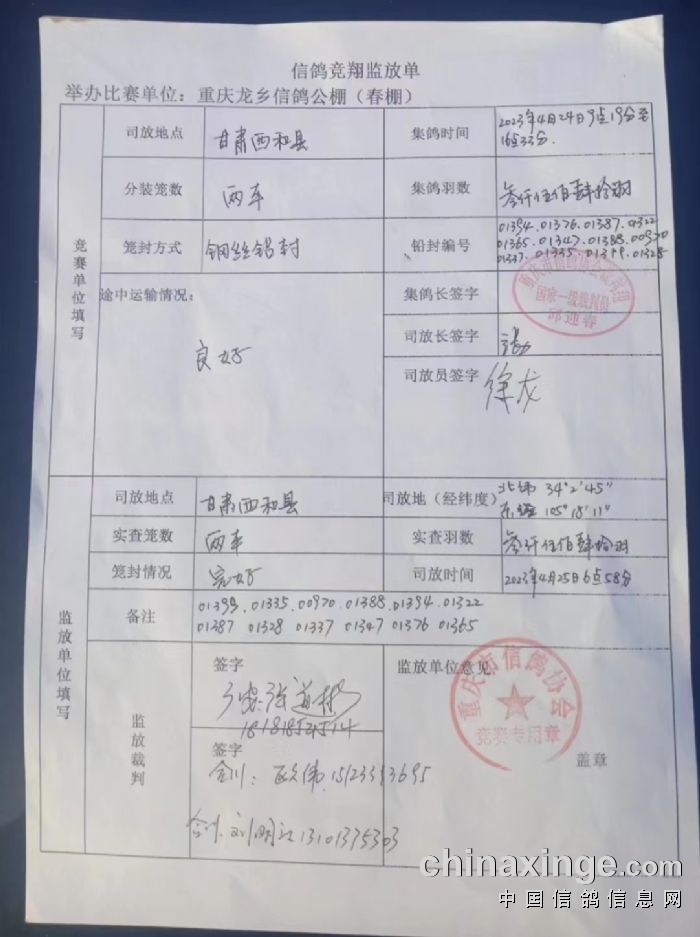 信鸽竞翔监放单
举办比赛单位：重庆龙乡信鸽公棚（春棚）
竞赛单位填写
司放地点 甘肃西和县 集鸽时间 2023年4月24日9点19分至
16点33分.
分装笼数 两车 集鸽羽数 叁仟伍佰肆拾羽
笼封方式 钢丝铅封 铅封编号 01394.01376.01387.01322
01365.01347.01388.00970
01337.01335.01399.01328
途中运输情况： 良好
集鸽长签字
国家一级裁判员
邱迎春
司放长签字 张
司放员签字 徐龙
监放单位填写
司放地点 甘肃西和县 司放地（经纬度） 北纬 34°2'45"
东经 105°18'11"
实查笼数 两车 实查羽数 叁仟伍佰肆拾羽
笼封情况 完好 司放时间 2023年4月25日6点58分
备注 01399.01335.00970.01388.01394.01322
01387 01328 01337 01347 01376 01365
监放裁判
签字
监放单位意见
重庆市信鸽协会
竞赛专用章
盖章
签字
合川：
合川.刘明江13101375303
chinaxinge.com
中国信鸽信息网